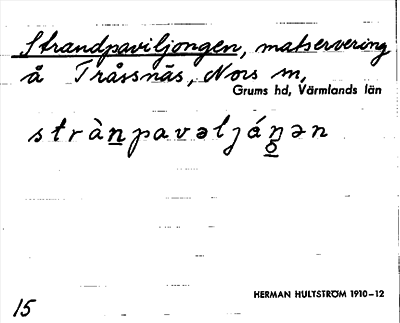 Strandpaviljongen, matservering
å Tråssnäs, Nors sn,
Grums hd, Värmlands län
stràn̲pavəljáŋ̲ən
HERMAN HULTSTRÖM 1910–12
15